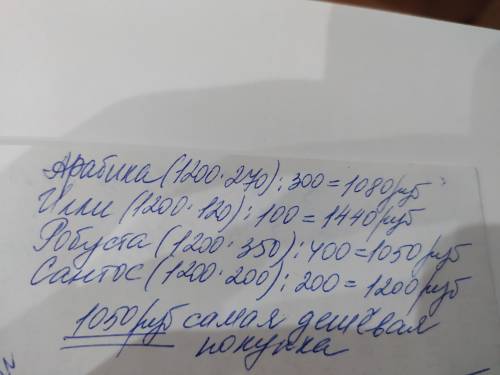 Арабика (1200·270):300=1080руб
Илли (1200·120):100=1440руб
Робуста (1200·350):400=1050руб
Сантос (1200·200):200=1200руб
1050руб самая дешёвая
покупка